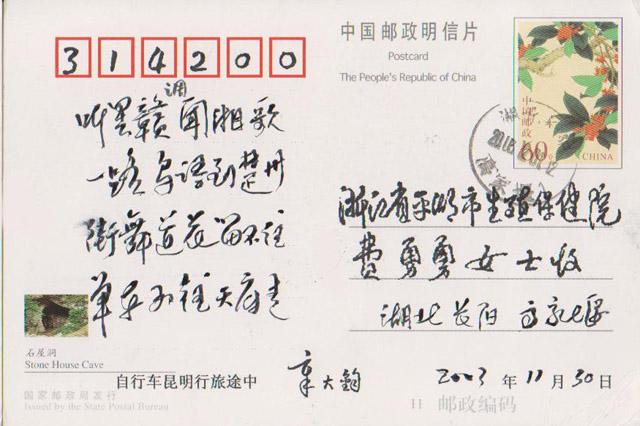 314200
中国邮政明信片
Postcard
The People's Republic of China
中国邮政
60分
CHINA
赣调闻湘歌
一路鸟语到楚州
街舞道花留不住
单车 天府走
浙江省平湖市生殖保健院
费勇勇女士收
湖北长阳 高家堰
石屋洞
Stone House Cave
自行车昆明行旅途中 章大钧 2003年11月30日
国家邮政局发行
Issued by the State Postal Bureau
11 邮政编码